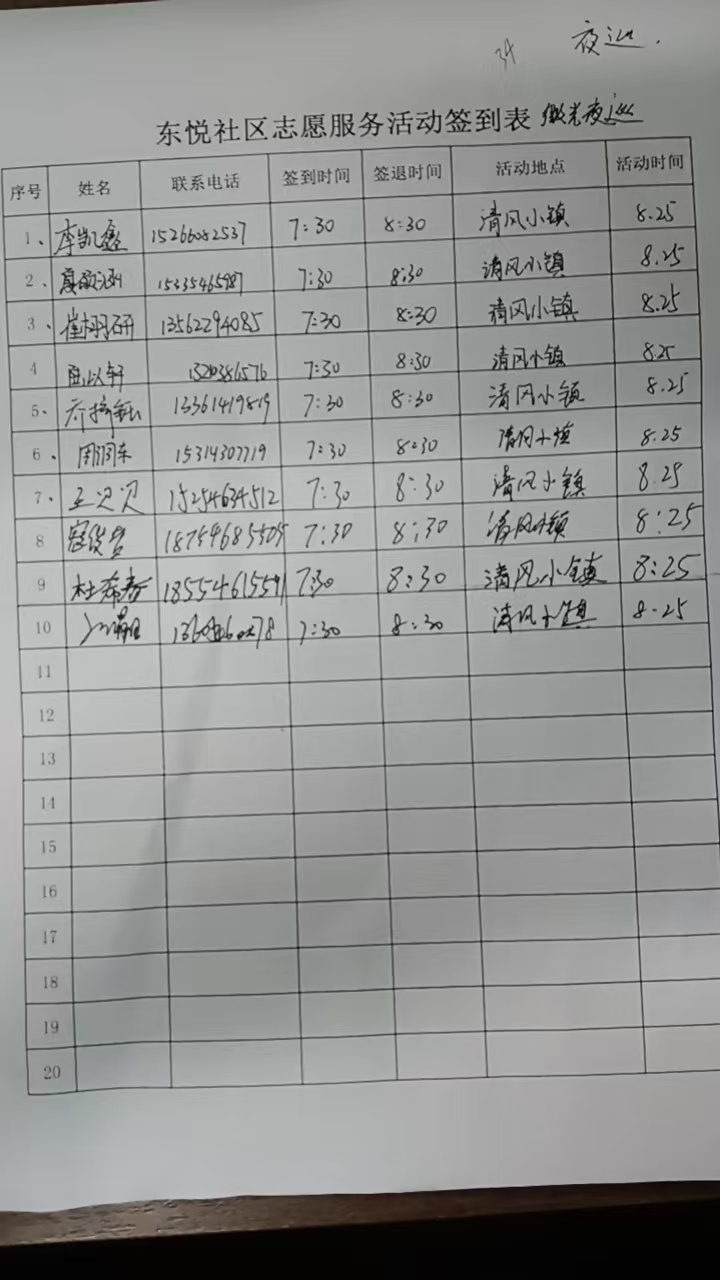 夜巡.
东悦社区志愿服务活动签到表 微光夜巡
序号 姓名 联系电话 签到时间 签退时间 活动地点 活动时间
1、 李凯鑫 15266082537 7:30 8:30 清风小镇 8.25
2、 7:30 8:30 清风小镇 8.25
3、 崔栩研 13562294085 7:30 8:30 清风小镇 8.25
4 7:30 8:30 清风小镇 8.25
5、 13361419819 7:30 8:30 清风小镇 8.25
6、 周润东 15314307719 7:30 8:30 清风小镇 8.25
7、 王贝贝 15254634512 7:30 8:30 清风小镇 8.25
8 18754685505 7:30 8:30 清风小镇 8:25
9 杜希春 18554615591 7:30 8:30 清风小镇 8:25
10 7:30 8:30 清风小镇 8.25
11
12
13
14
15
16
17
18
19
20